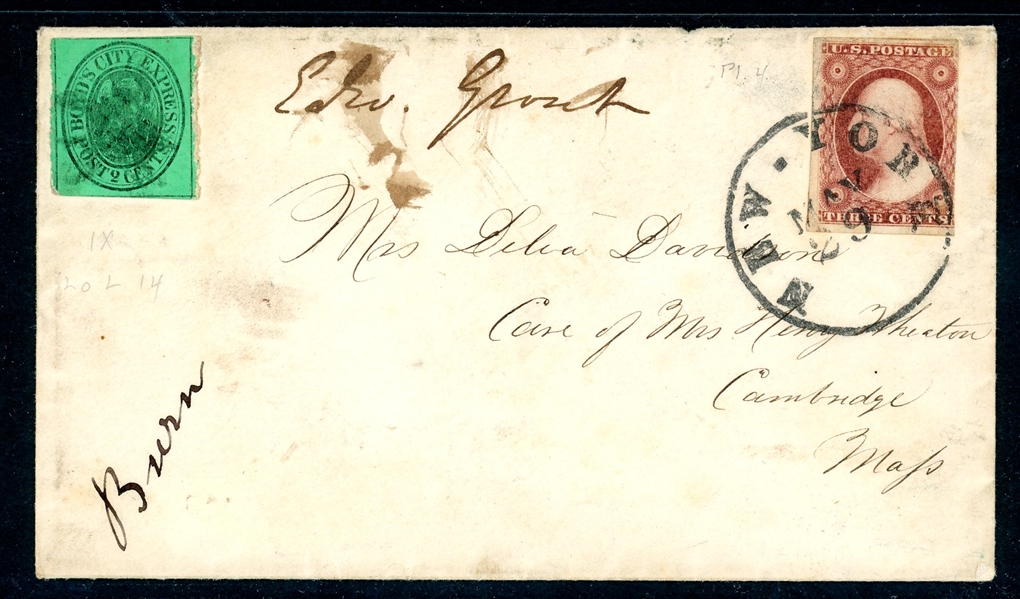 BOYD'S CITY EXPRESS
POST 2 CENTS
Edw.
Pl. 4
U.S. POSTAGE
THREE CENTS
NEW-YORK
MAY
9
Mrs Delia Davidson
Care of Mrs Henry Wheaton
Cambridge
Mass
1X
20 L 14
Burn